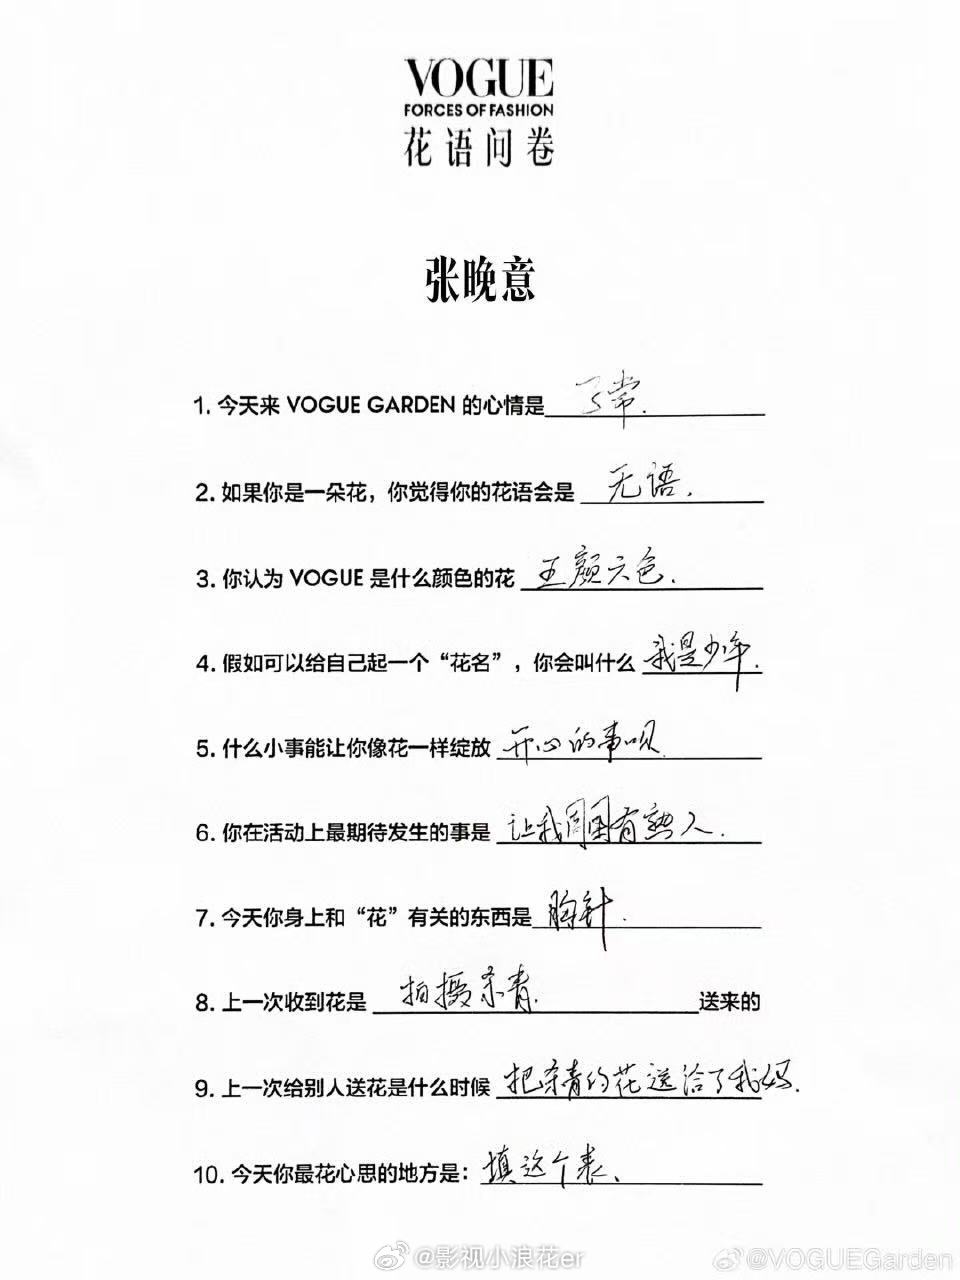 VOGUE
FORCES OF FASHION
花语问卷
张晚意
1. 今天来 VOGUE GARDEN 的心情是 常.
2. 如果你是一朵花，你觉得你的花语会是 无语.
3. 你认为 VOGUE 是什么颜色的花 五颜六色.
4. 假如可以给自己起一个“花名”，你会叫什么 我是少年.
5. 什么小事能让你像花一样绽放 开心的事呗
6. 你在活动上最期待发生的事是 让我周围有熟人.
7. 今天你身上和“花”有关的东西是 胸针.
8. 上一次收到花是 拍摄杀青. 送来的
9. 上一次给别人送花是什么时候 把杀青的花送给了我妈.
10. 今天你最花心思的地方是： 填这个表.
@影视小浪花er
@VOGUEGarden